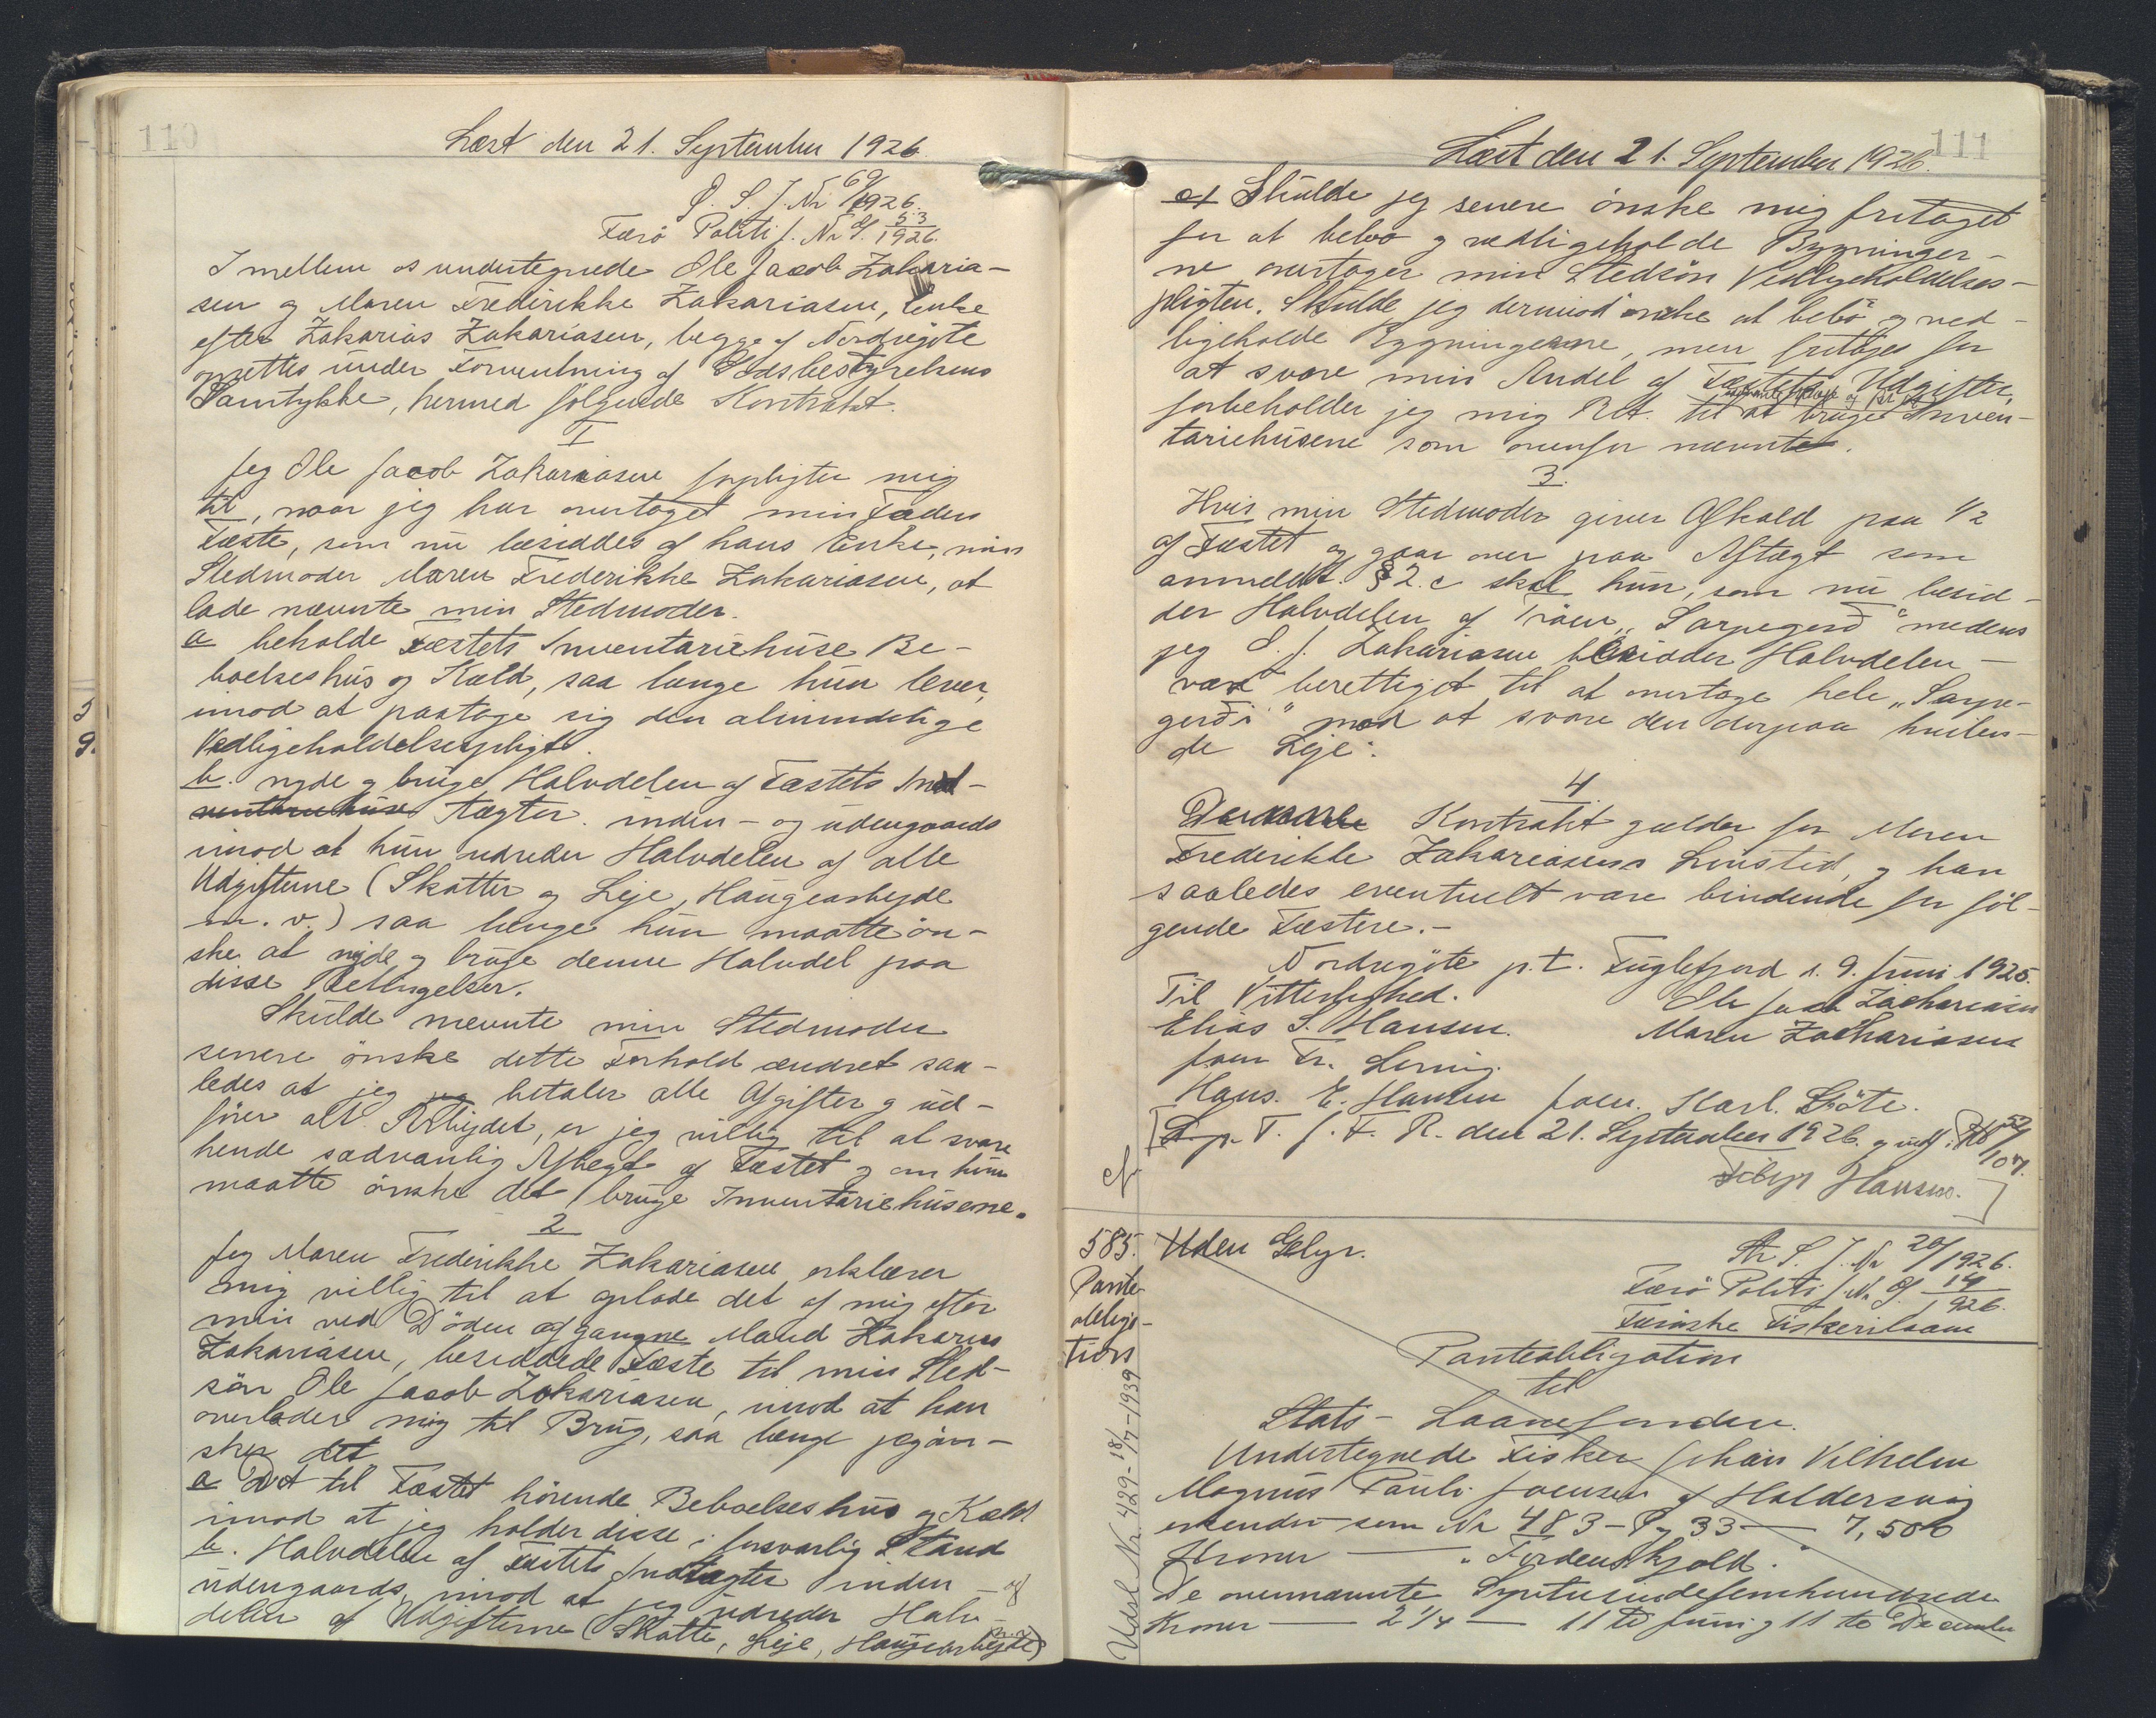 110
Læst den 21. September 1926.
J. Nr 69/1926.
Færö Politi J. Nr 53/1926.
Imellem os undertegnede Ole Jacob Zakaria-
sen og Maren Frederikke Zakariasen, Enke
efter Zakarias Zakariasen, begge af Nordregöte
oprettes under Forventning af Godsbestyrelsens
Samtykke, hermed fölgende Kontrakt.
I
Jeg Ole Jacob Zakariasen forpligter mig
til, naar jeg har overtaget min Faders
Fæste, som nu besiddes af hans Enke, min
Stedmoder Maren Frederikke Zakariasen, at
lade nævnte min Stedmoder.
a beholde Fæstets Inventariehuse Be-
boelseshus og Hjald, saa længe hun lever,
imod at paatage sig den almindelige
Vedligeholdelsespligt.
b. nyde og bruge Halvdelen af Fæstets Ind-
ventariehuse tægter inden- og udengaards
imod at hun udreder Halvdelen af alle
Udgifterne (Skatter og Leje, Haugearbejde
m. v.) saa længe hun maatte ön-
ske at nyde og bruge denne Halvdel paa
disse Betingelser.
Skulde nævnte min Stedmoder
senere önske dette Forhold ændret saa-
ledes at jeg jeg betaler alle Afgifter og ud-
förer alt Arbejdet, er jeg villig til at svare
hende sædvanlig Aftægt af Fæstet og om hun
maatte önske det bruge Inventariehusene.
2
Jeg Maren Frederikke Zakariasen erklærer
mig villig til at oplade det af mig efter
min ved Döden afgangne Mand Zakarias
Zakariasen, besiddede Fæste til min Sted-
sön Ole Jacob Zakariasen, imod at han
overlader mig til Brug, saa længe jeg ön-
sker det
a Det til Fæstet hörende Beboelseshus og Kjald
imod at jeg holder disse i forsvarlig Stand
b. Halvdelen af Fæstets Indtægter inden- og
udengaards, imod at jeg udreder Halv-
delen af Udgifterne (Skatte, Leje, Haugearbejde m. v.)
111
Læst den 21. September 1926.
c) Skulde jeg senere önske mig fritaget
for at bebo og vedligeholde Bygninger-
ne overtager min Stedsön Vedligeholdelses-
pligten. Skulde jeg derimod önske at bebo og ved-
ligeholde Bygningerne, men fritages for
at svare min Andel af Fæstets Udgifter,
forbeholder jeg mig Ret til at bruge Inven-
tariehusene som ovenfor nævnte.
3.
Hvis min Stedmoder giver Afkald paa 1/2
af Fæstet og gaar over paa Aftægt som
anmeldt § 2. c skal hun, som nu besid-
der Halvdelen af Tröen "Sarpegerd" medens
jeg O. J. Zakariasen besidder Halvdelen -
være berettiget til at overtage hele "Sarpe-
gerdi" mod at svare den derpaa hvilen-
de Leje.
4.
Denne Kontrakt gælder for Maren
Frederikke Zakariasens Livstid, og kan
saaledes eventuelt være bindende for föl-
gende Fæstere.-
Nordregöte p.t. Fuglefjord d. 9. Juni 1925.
Til Vitterlighed.
Ole Jacob Zachariasen
Elias S. Hansen.
Maren Zachariasen
Joen Fr.
Hans. E. Hansen Joen. Karl. Göte.
T. J. F. R. den 21. September 1926.
Hansen.
cf.
585.
Pante-
obliga-
tion
Uden Gebyr.
J. Nr 20/1926.
Færö Politi J. Nr 14/1926.
Færöske Fiskerilaan
Panteobligation
til
Stats-Laanefonden.
Undertegnede Fisker Johan Vilhelm
Magnus Pauli Joensen af Haldersvig
erkender som Nr 483 - P. 33 — 7,500
Kroner — "Tordenskjold."
De ovennævnte Syvtusindefemhundrede
Kroner — 2 1/4 — 11 te Juni og 11 te December
Udsl. Nr. 429 - 18/7 - 1939